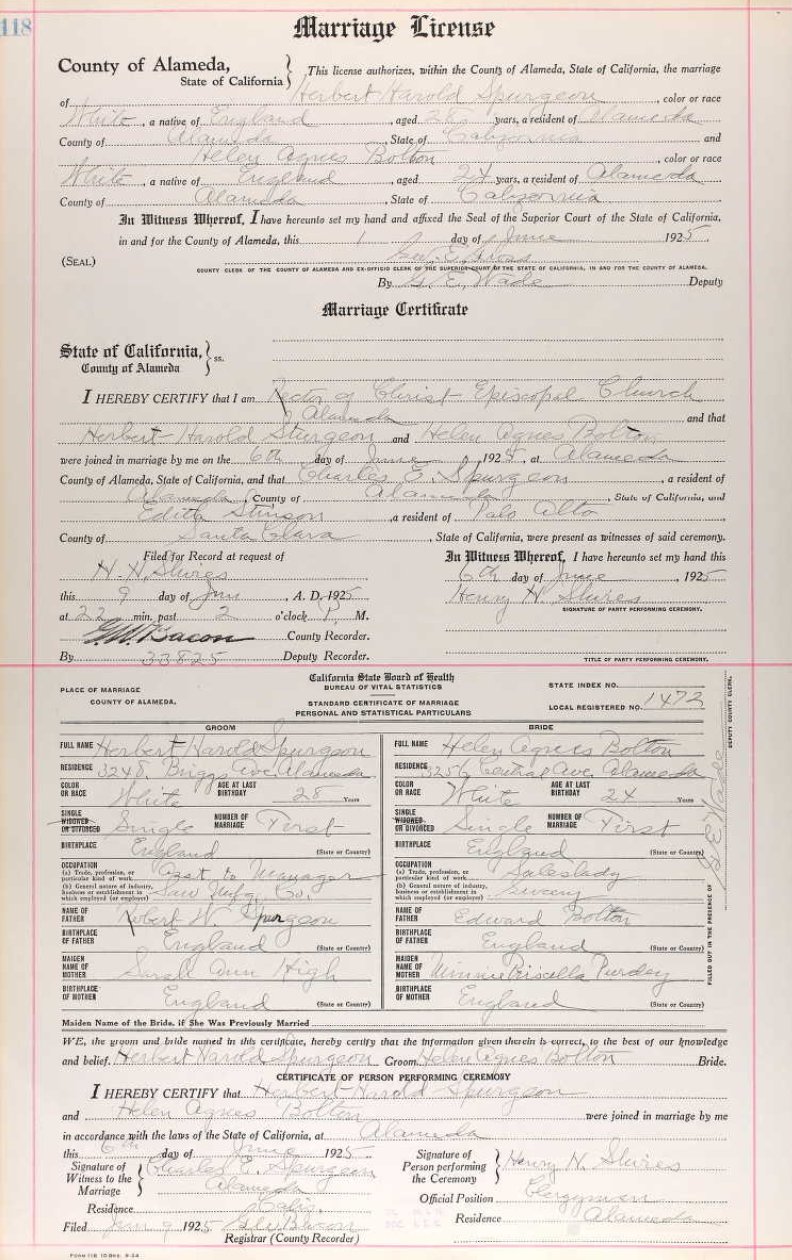 118
Marriage License
County of Alameda,
State of California
This license authorizes, within the County of Alameda, State of California, the marriage
of Herbert Harold Spurgeon, color or race
White, a native of England, aged years, a resident of Alameda
County of Alameda, State of California and
Helen Agnes Bolton, color or race
White, a native of England, aged 24 years, a resident of Alameda
County of Alameda, State of California.
In Witness Whereof, I have hereunto set my hand and affixed the Seal of the Superior Court of the State of California,
in and for the County of Alameda, this 1 day of June 1925.
(SEAL) Geo. E. Gross
COUNTY CLERK OF THE COUNTY OF ALAMEDA AND EX-OFFICIO CLERK OF THE SUPERIOR COURT OF THE STATE OF CALIFORNIA, IN AND FOR THE COUNTY OF ALAMEDA.
By G. E. Wade Deputy
Marriage Certificate
State of California,
County of Alameda
ss.
I HEREBY CERTIFY that I am Rector of Christ Episcopal Church
Alameda and that
Herbert Harold Sturgeon and Helen Agnes Bolton
were joined in marriage by me on the 6th day of June, 1925, at Alameda
County of Alameda, State of California, and that Charles E. Spurgeon, a resident of
Alameda, County of Alameda, State of California, and
Edith Stinson, a resident of Palo Alto
County of Santa Clara, State of California, were present as witnesses of said ceremony.
Filed for Record at request of
H. H. Shires
this 9 day of Jun, A. D. 1925
at 22 min. past 2 o'clock P. M.
G.W. Bacon County Recorder.
By 33825 Deputy Recorder.
In Witness Whereof, I have hereunto set my hand this
6th day of June, 1925
Henry H. Shires
SIGNATURE OF PARTY PERFORMING CEREMONY.
TITLE OF PARTY PERFORMING CEREMONY.
PLACE OF MARRIAGE
COUNTY OF ALAMEDA.
California State Board of Health
BUREAU OF VITAL STATISTICS
STANDARD CERTIFICATE OF MARRIAGE
PERSONAL AND STATISTICAL PARTICULARS
STATE INDEX NO.
LOCAL REGISTERED NO. 1473
GROOM
FULL NAME Herbert Harold Spurgeon
RESIDENCE 3248 Briggs Ave. Alameda
COLOR OR RACE White AGE AT LAST BIRTHDAY 28 Years
SINGLE WIDOWED OR DIVORCED Single NUMBER OF MARRIAGE First
BIRTHPLACE England (State or Country)
OCCUPATION
(a) Trade, profession, or particular kind of work Asst to Manager
(b) General nature of industry, business or establishment in which employed (or employer) Saw Mfg. Co.
NAME OF FATHER Robert W. Spurgeon
BIRTHPLACE OF FATHER England (State or Country)
MAIDEN NAME OF MOTHER Sarah Ann High
BIRTHPLACE OF MOTHER England (State or Country)
BRIDE
FULL NAME Helen Agnes Bolton
RESIDENCE 3256 Central Ave. Alameda
COLOR OR RACE White AGE AT LAST BIRTHDAY 24 Years
SINGLE WIDOWED OR DIVORCED Single NUMBER OF MARRIAGE First
BIRTHPLACE England (State or Country)
OCCUPATION
(a) Trade, profession, or particular kind of work Saleslady
(b) General nature of industry, business or establishment in which employed (or employer)
NAME OF FATHER Edward Bolton
BIRTHPLACE OF FATHER England (State or Country)
MAIDEN NAME OF MOTHER Minnie Priscella Purdey
BIRTHPLACE OF MOTHER England (State or Country)
FILLED OUT IN THE PRESENCE OF G. E. Wade DEPUTY COUNTY CLERK.
Maiden Name of the Bride, if She Was Previously Married
WE, the groom and bride named in this certificate, hereby certify that the information given therein is correct, to the best of our knowledge
and belief. Herbert Harold Spurgeon Groom. Helen Agnes Bolton Bride.
CERTIFICATE OF PERSON PERFORMING CEREMONY
I HEREBY CERTIFY that Herbert Harold Spurgeon
and Helen Agnes Bolton were joined in marriage by me
in accordance with the laws of the State of California, at Alameda
this 6th day of June 1925
Signature of Witness to the Marriage Charles E. Spurgeon
Alameda
Residence Calif.
Filed Jun 9 1925 GW Bacon
Registrar (County Recorder)
Signature of Person performing the Ceremony Henry H. Shires
Official Position Clergyman
Residence Alameda